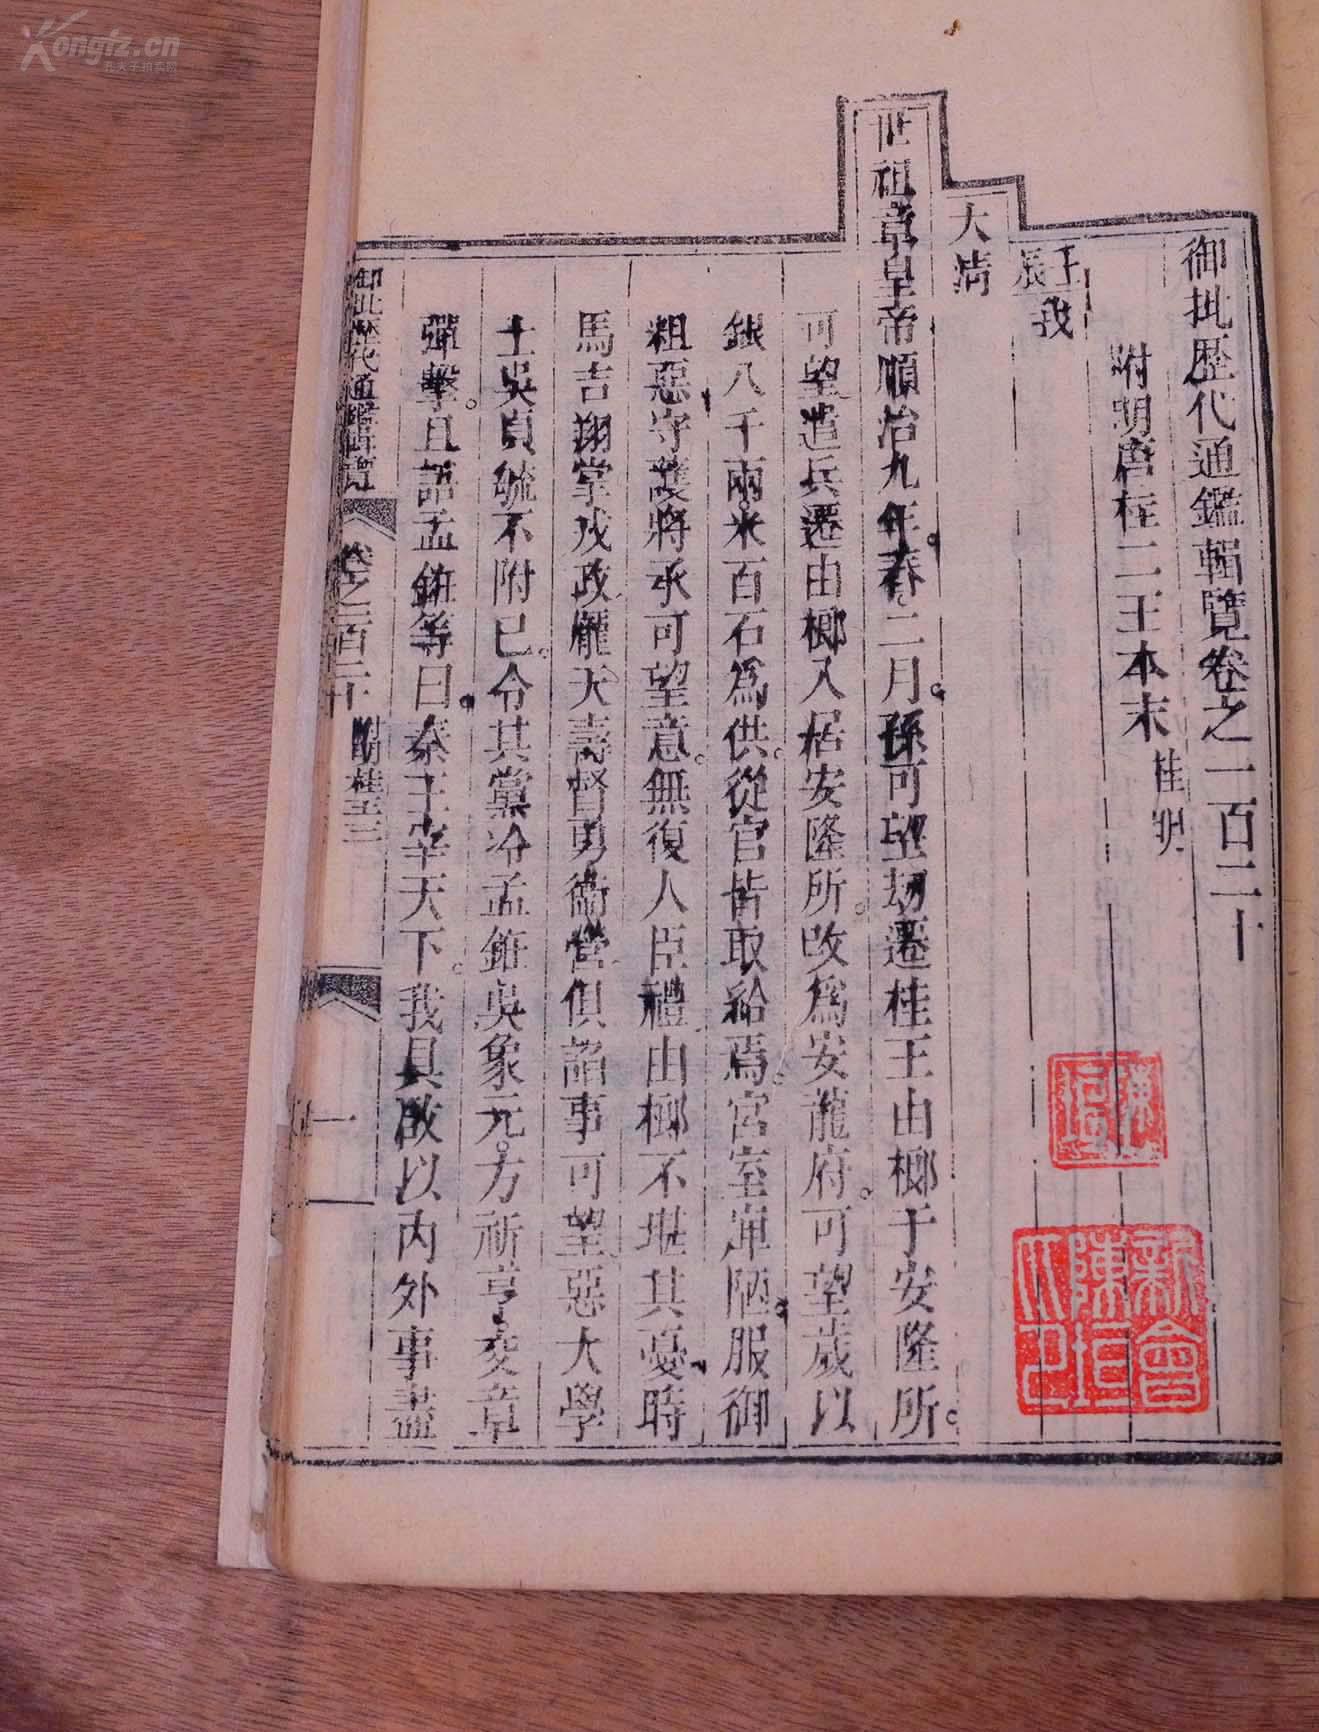 御批歷代通鑑輯覽卷之一百二十
附明唐桂二王本末
桂
壬辰我
大清
世祖章皇帝順治九年春二月孫可望刼遷桂王由榔于安隆所
可望遣兵遷由榔入居安隆所改為安龍府可望歲以
銀八千兩米百石為供從官皆取給焉宮室庳陋服御
粗惡守護將承可望意無復人臣禮由榔不堪其憂時
馬吉翔掌戎政龐天壽督勇衛營俱諂事可望惡大學
士吳貞毓不附已令其黨冷孟銋吳象元方祚亨交章
彈擊且語孟銋等曰秦王宰天下我具啟以內外事盡
御批歷代通鑑輯覽
卷之一百二十
附明桂王三
一
新會陳垣
Kongfz.cn
孔夫子拍卖网